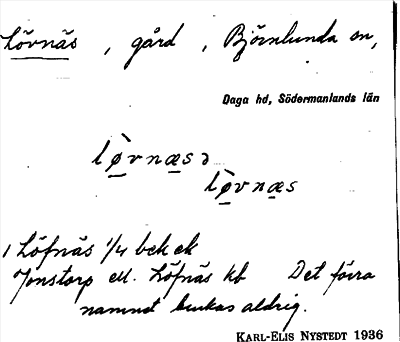 Lövnäs, gård, Björnlunda sn,
Daga hd, Södermanlands län
lø̀vnæsə
lø̀vnæs
1 Löfnäs 1/4 bebek
Jonstorp ell. Löfnäs kb Det förra
namnet brukas aldrig.
KARL-ELIS NYSTEDT 1936